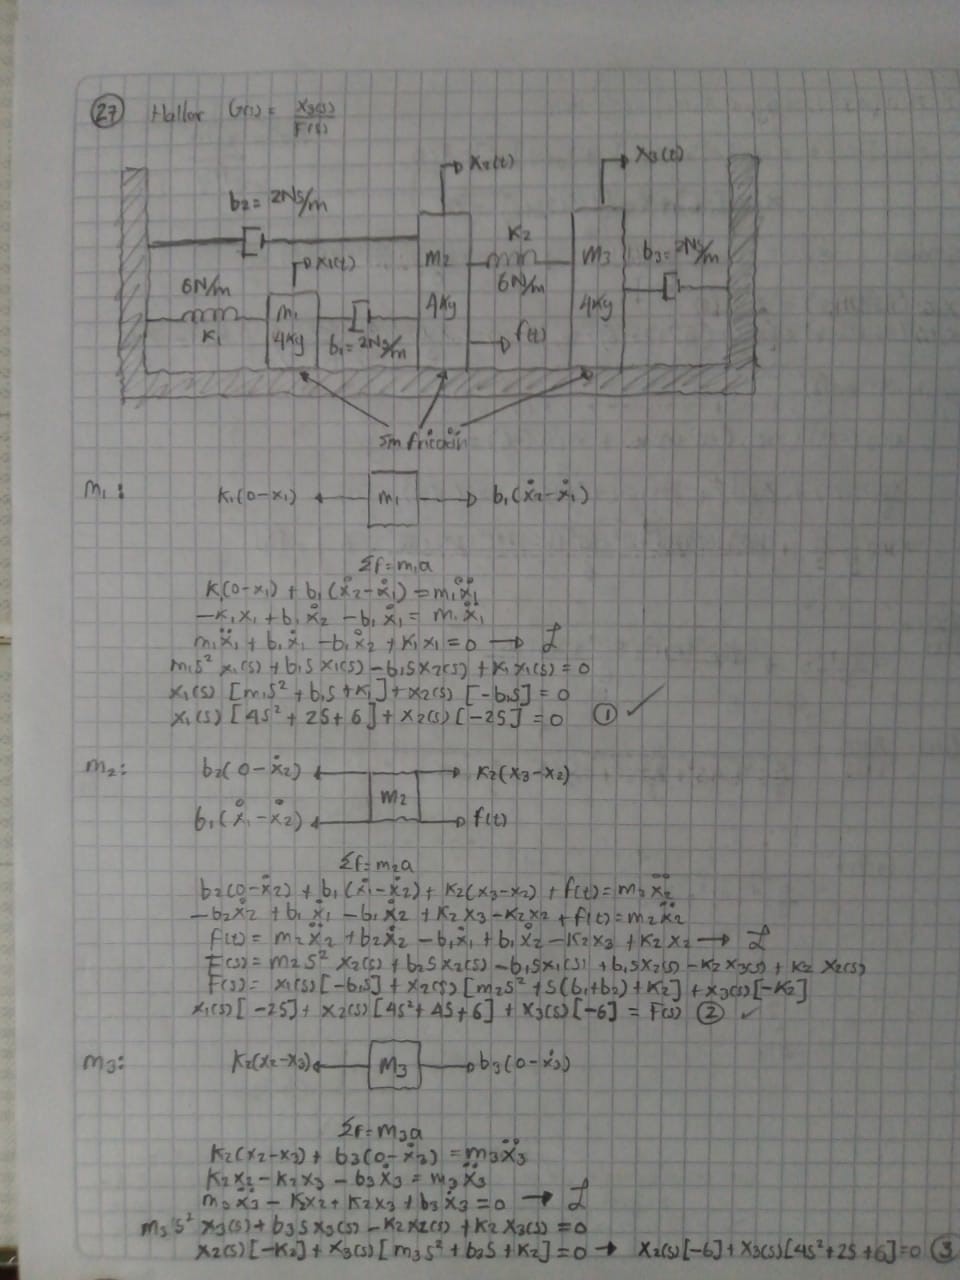 27 Hallar G(s) = X3(s)/F(s)
x2(t)
x3(t)
b2 = 2Ns/m
x1(t)
K2
m2
m3
b3 = 2Ns/m
6N/m
m1
6N/m
4Kg
4Kg
K1
4Kg
b1 = 2Ns/m
f(t)
sin fricción
m1:
K1(0-x1)
m1
b1(ẋ2-ẋ1)
Σf = m1a
K1(0-x1) + b1(ẋ2-ẋ1) = m1ẍ1
-K1x1 + b1ẋ2 - b1ẋ1 = m1ẍ1
m1ẍ1 + b1ẋ1 - b1ẋ2 + K1x1 = 0 → ℒ
m1s² x1(s) + b1s x1(s) - b1s x2(s) + K1 x1(s) = 0
x1(s) [m1s² + b1s + K1] + x2(s) [-b1s] = 0
x1(s) [4s² + 2s + 6] + x2(s) [-2s] = 0 ① ✓
m2:
b2(0-ẋ2)
K2(x3-x2)
m2
b1(ẋ1-ẋ2)
f(t)
Σf = m2a
b2(0-ẋ2) + b1(ẋ1-ẋ2) + K2(x3-x2) + f(t) = m2ẍ2
-b2ẋ2 + b1ẋ1 - b1ẋ2 + K2x3 - K2x2 + f(t) = m2ẍ2
f(t) = m2ẍ2 + b2ẋ2 - b1ẋ1 + b1ẋ2 - K2x3 + K2x2 → ℒ
F(s) = m2s² x2(s) + b2s x2(s) - b1s x1(s) + b1s x2(s) - K2 x3(s) + K2 x2(s)
F(s) = x1(s)[-b1s] + x2(s)[m2s² + s(b1+b2) + K2] + x3(s)[-K2]
x1(s)[-2s] + x2(s)[4s² + 4s + 6] + x3(s)[-6] = F(s) ② ✓
m3:
K2(x2-x3)
m3
b3(0-ẋ3)
Σf = m3a
K2(x2-x3) + b3(0-ẋ3) = m3ẍ3
K2x2 - K2x3 - b3ẋ3 = m3ẍ3
m3ẍ3 - K2x2 + K2x3 + b3ẋ3 = 0 → ℒ
m3s² x3(s) + b3s x3(s) - K2x2(s) + K2 x3(s) = 0
x2(s)[-K2] + x3(s)[m3s² + b3s + K2] = 0 → x2(s)[-6] + x3(s)[4s² + 2s + 6] = 0 ③